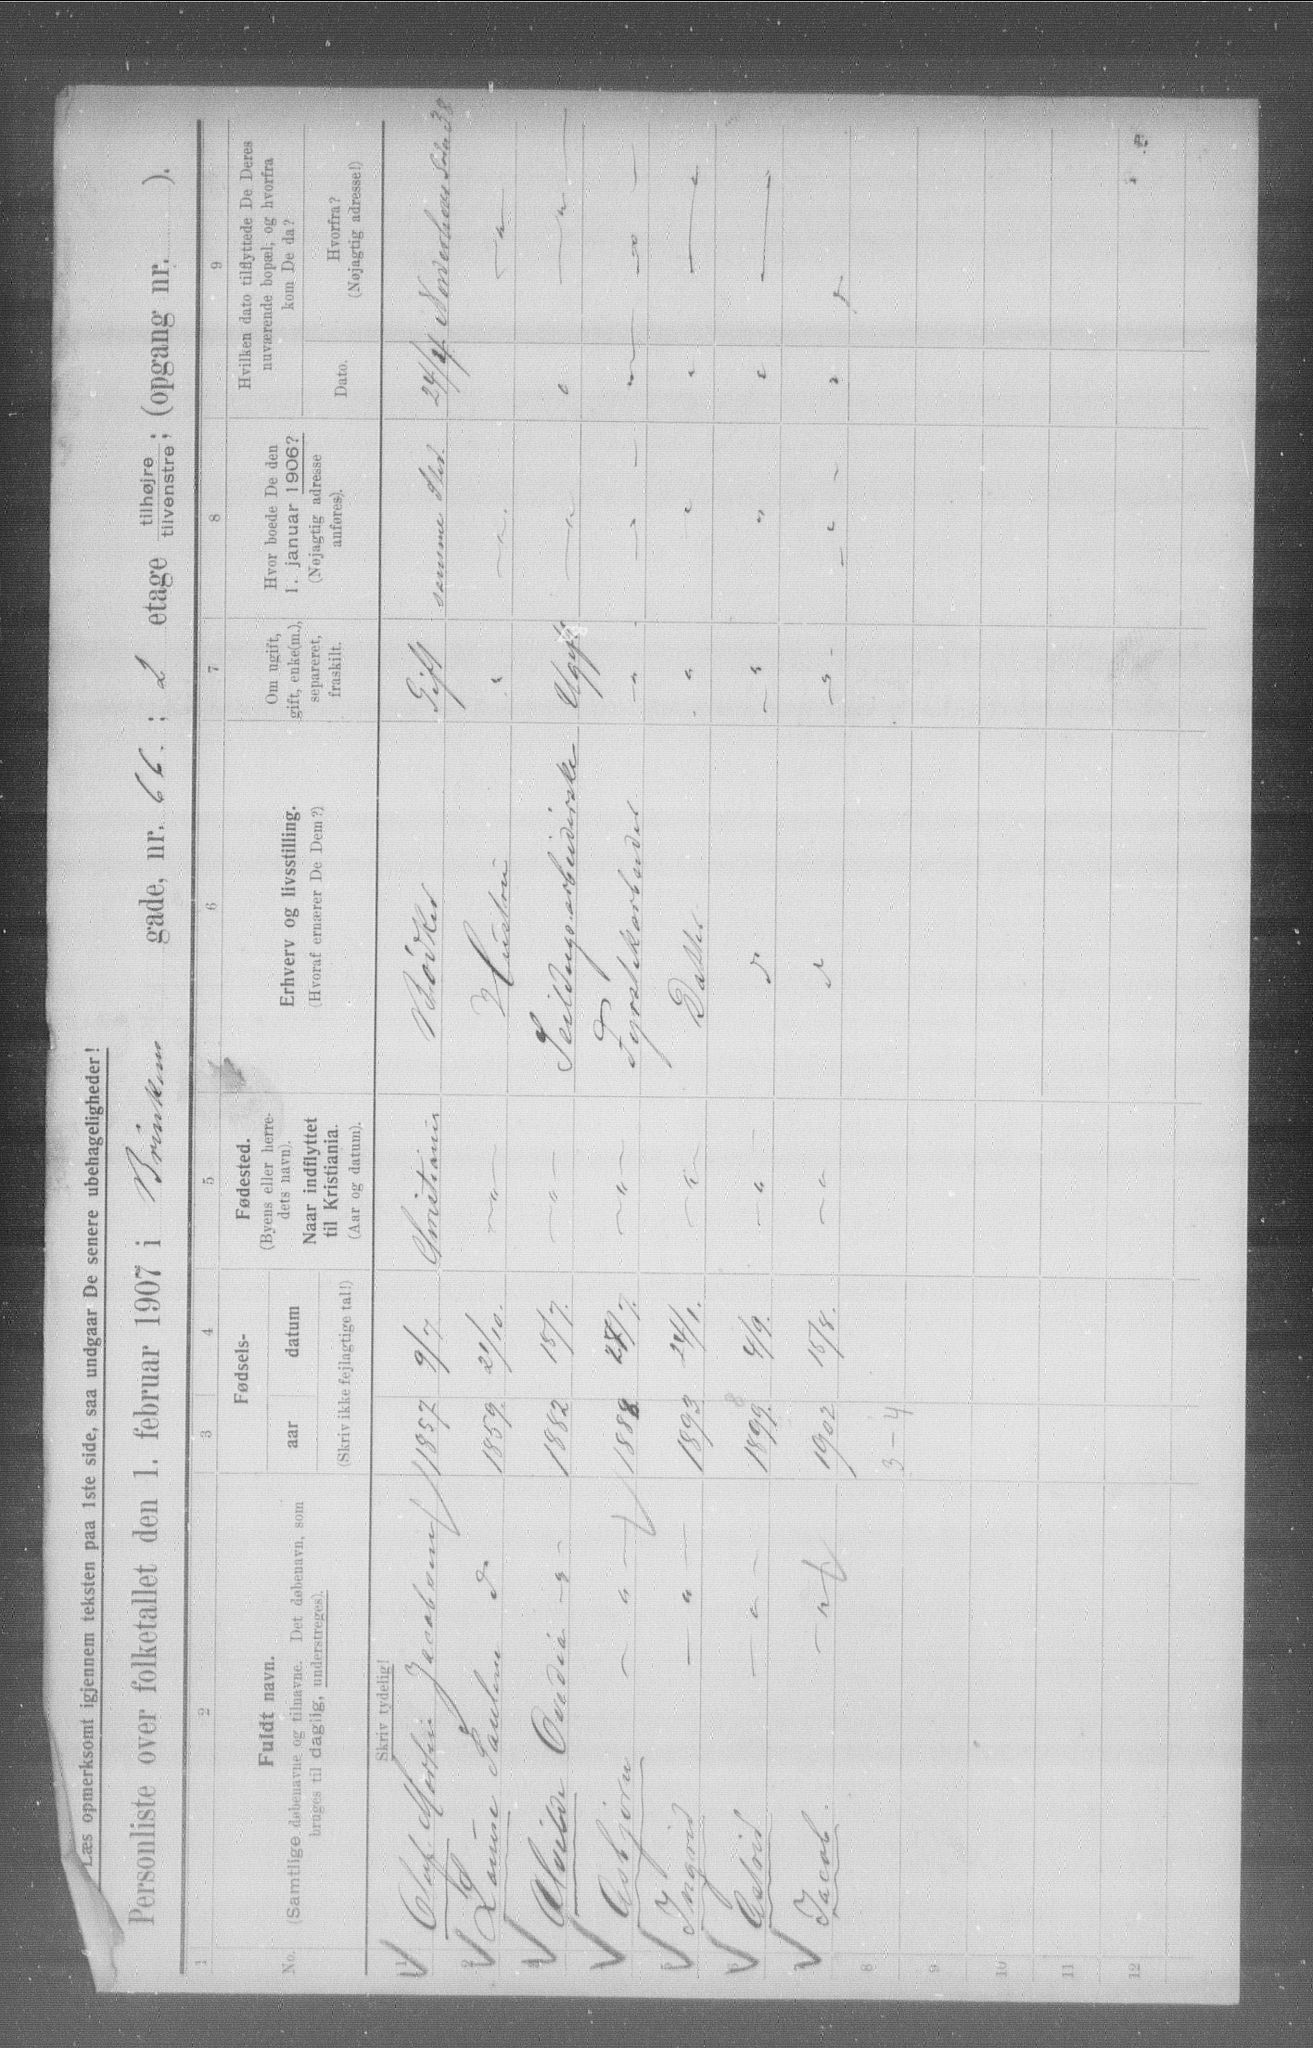 Læs opmerksomt igjennem teksten paa 1ste side, saa undgaar De senere ubehageligheder!
Personliste over folketallet den 1. februar 1907 i Brinken gade, nr. 66. ; 2 etage tilhøjre / tilvenstre; (opgang nr. ).
1 2 3 4 5 6 7 8 9
No.
Fuldt navn.
(Samtlige døbenavne og tilnavne. Det døbenavn, som
bruges til daglig, understreges).
Fødsels-
aar datum
(Skriv ikke fejlagtige tal!)
Fødested.
(Byens eller herre-
dets navn).
Naar indflyttet
til Kristiania.
(Aar og datum).
Erhverv og livsstilling.
(Hvoraf ernærer De Dem?)
Om ugift,
gift, enke(m.),
separeret,
fraskilt.
Hvor boede De den
1. januar 1906?
(Nøjagtig adresse
anføres).
Hvilken dato tilflyttede De Deres
nuværende bopæl, og hvorfra
kom De da?
Dato.
Hvorfra?
(Nøjagtig adresse!)
Skriv tydelig!
1 Olaf Martin Jacobsen 1857 9/7 Christiania Bødker Gift samme sted. 24/4
2 Louise Pauline d 1859. 21/10. — " — Hustru " — " — "
3 Alvilde Ovedia — " — 1882 18/7. — " — Ugift — " — " — " —
4 Asbjørn — " — 1888 7. — " — Fabrikarbeider — " — — " — " — " —
5 Ingrid — " — 1893 24/1. — " — Datter " " " — "
6 Astrid — " — 1899. 4/9. — " d — " " " — "
7 Jacob. — " — 1902 18/8. — " d — " — — " — " d
3 - 4
8
9
10
11
12